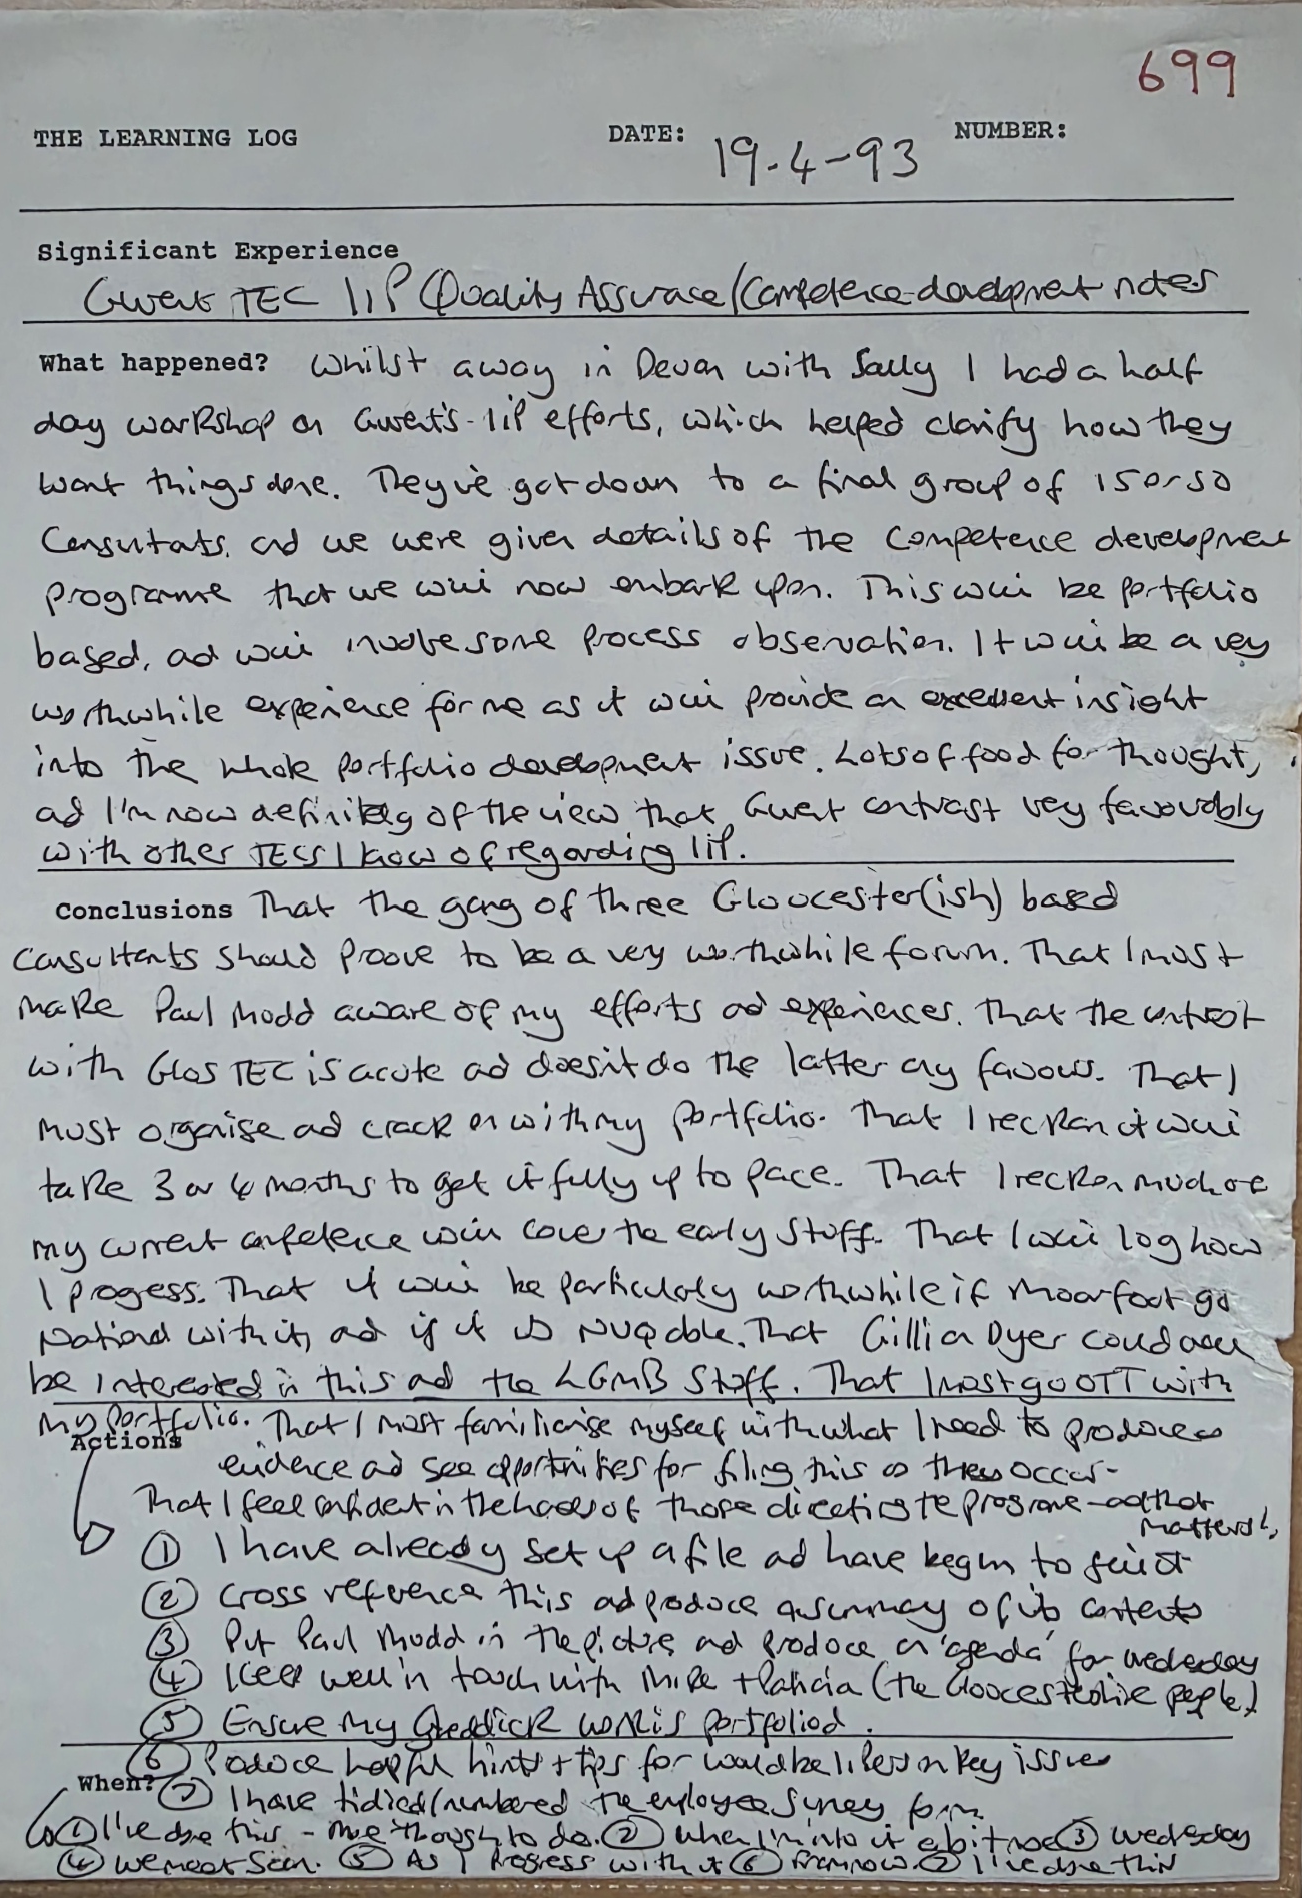 699
THE LEARNING LOG DATE: 19-4-93 NUMBER:
Significant Experience
Gwent TEC IiP Quality Assurace/Competence-development notes
What happened? Whilst away in Devon with Sally I had a half
day workshop on Gwent's IiP efforts, which helped clarify how they
want things done. They've got down to a final group of 15 or so
Consultats, and we were given details of the competence development
programme that we will now embark upon. This will be portfolio
based, ad will involve some process observation. It will be a very
worthwhile experience for me as it will provide an excellent insight
into the whole portfolio development issue. Lots of food for thought,
ad I'm now definitely of the view that Gwent contrast very favourably
with other TECs I know of regarding IiP.
Conclusions That the gang of three Gloucester(ish) based
consultants should proove to be a very worthwhile forum. That I must
make Paul Mudd aware of my efforts ad experiences. That the contrast
with Glos TEC is acute ad doesn't do the latter any favours. That I
must organise ad crack on with my portfolio. That I reckon it will
take 3 or 4 months to get it fully up to pace. That I reckon much of
my current competence will cover the early stuff. That I will log how
I progress. That it will be particularly worthwhile if Moorfoot go
National with it, ad if it is NVQable. That Gillian Dyer could well
be interested in this ad the LGMB Stuff. That I must go OTT with
my portfolio. That I must familiarise myself with what I need to produce as
Actions
evidence ad see opportunities for filing this as they occur-
That I feel confident in the hads of those directing the programe-ad that
matters!,
① I have already set up a file ad have begun to fill it
② Cross reference this ad produce a summary of its contents
③ Put Paul Mudd in the picture, and produce an 'agenda' for wednesday
④ Keep well in touch with Mike + Patricia (the Gloucestershire people)
⑤ Ensure my work is portfoliod.
⑥ Produce helpful hints + tips for would be IiPers on key issues
When? ⑦ I have tidied/numbered the employee survey form
① I've done this - more though to do. ② When I'm into it a bit more ③ Wednesday
④ we meet soon. ⑤ As I progress with it ⑥ From now. ⑦ I've done this